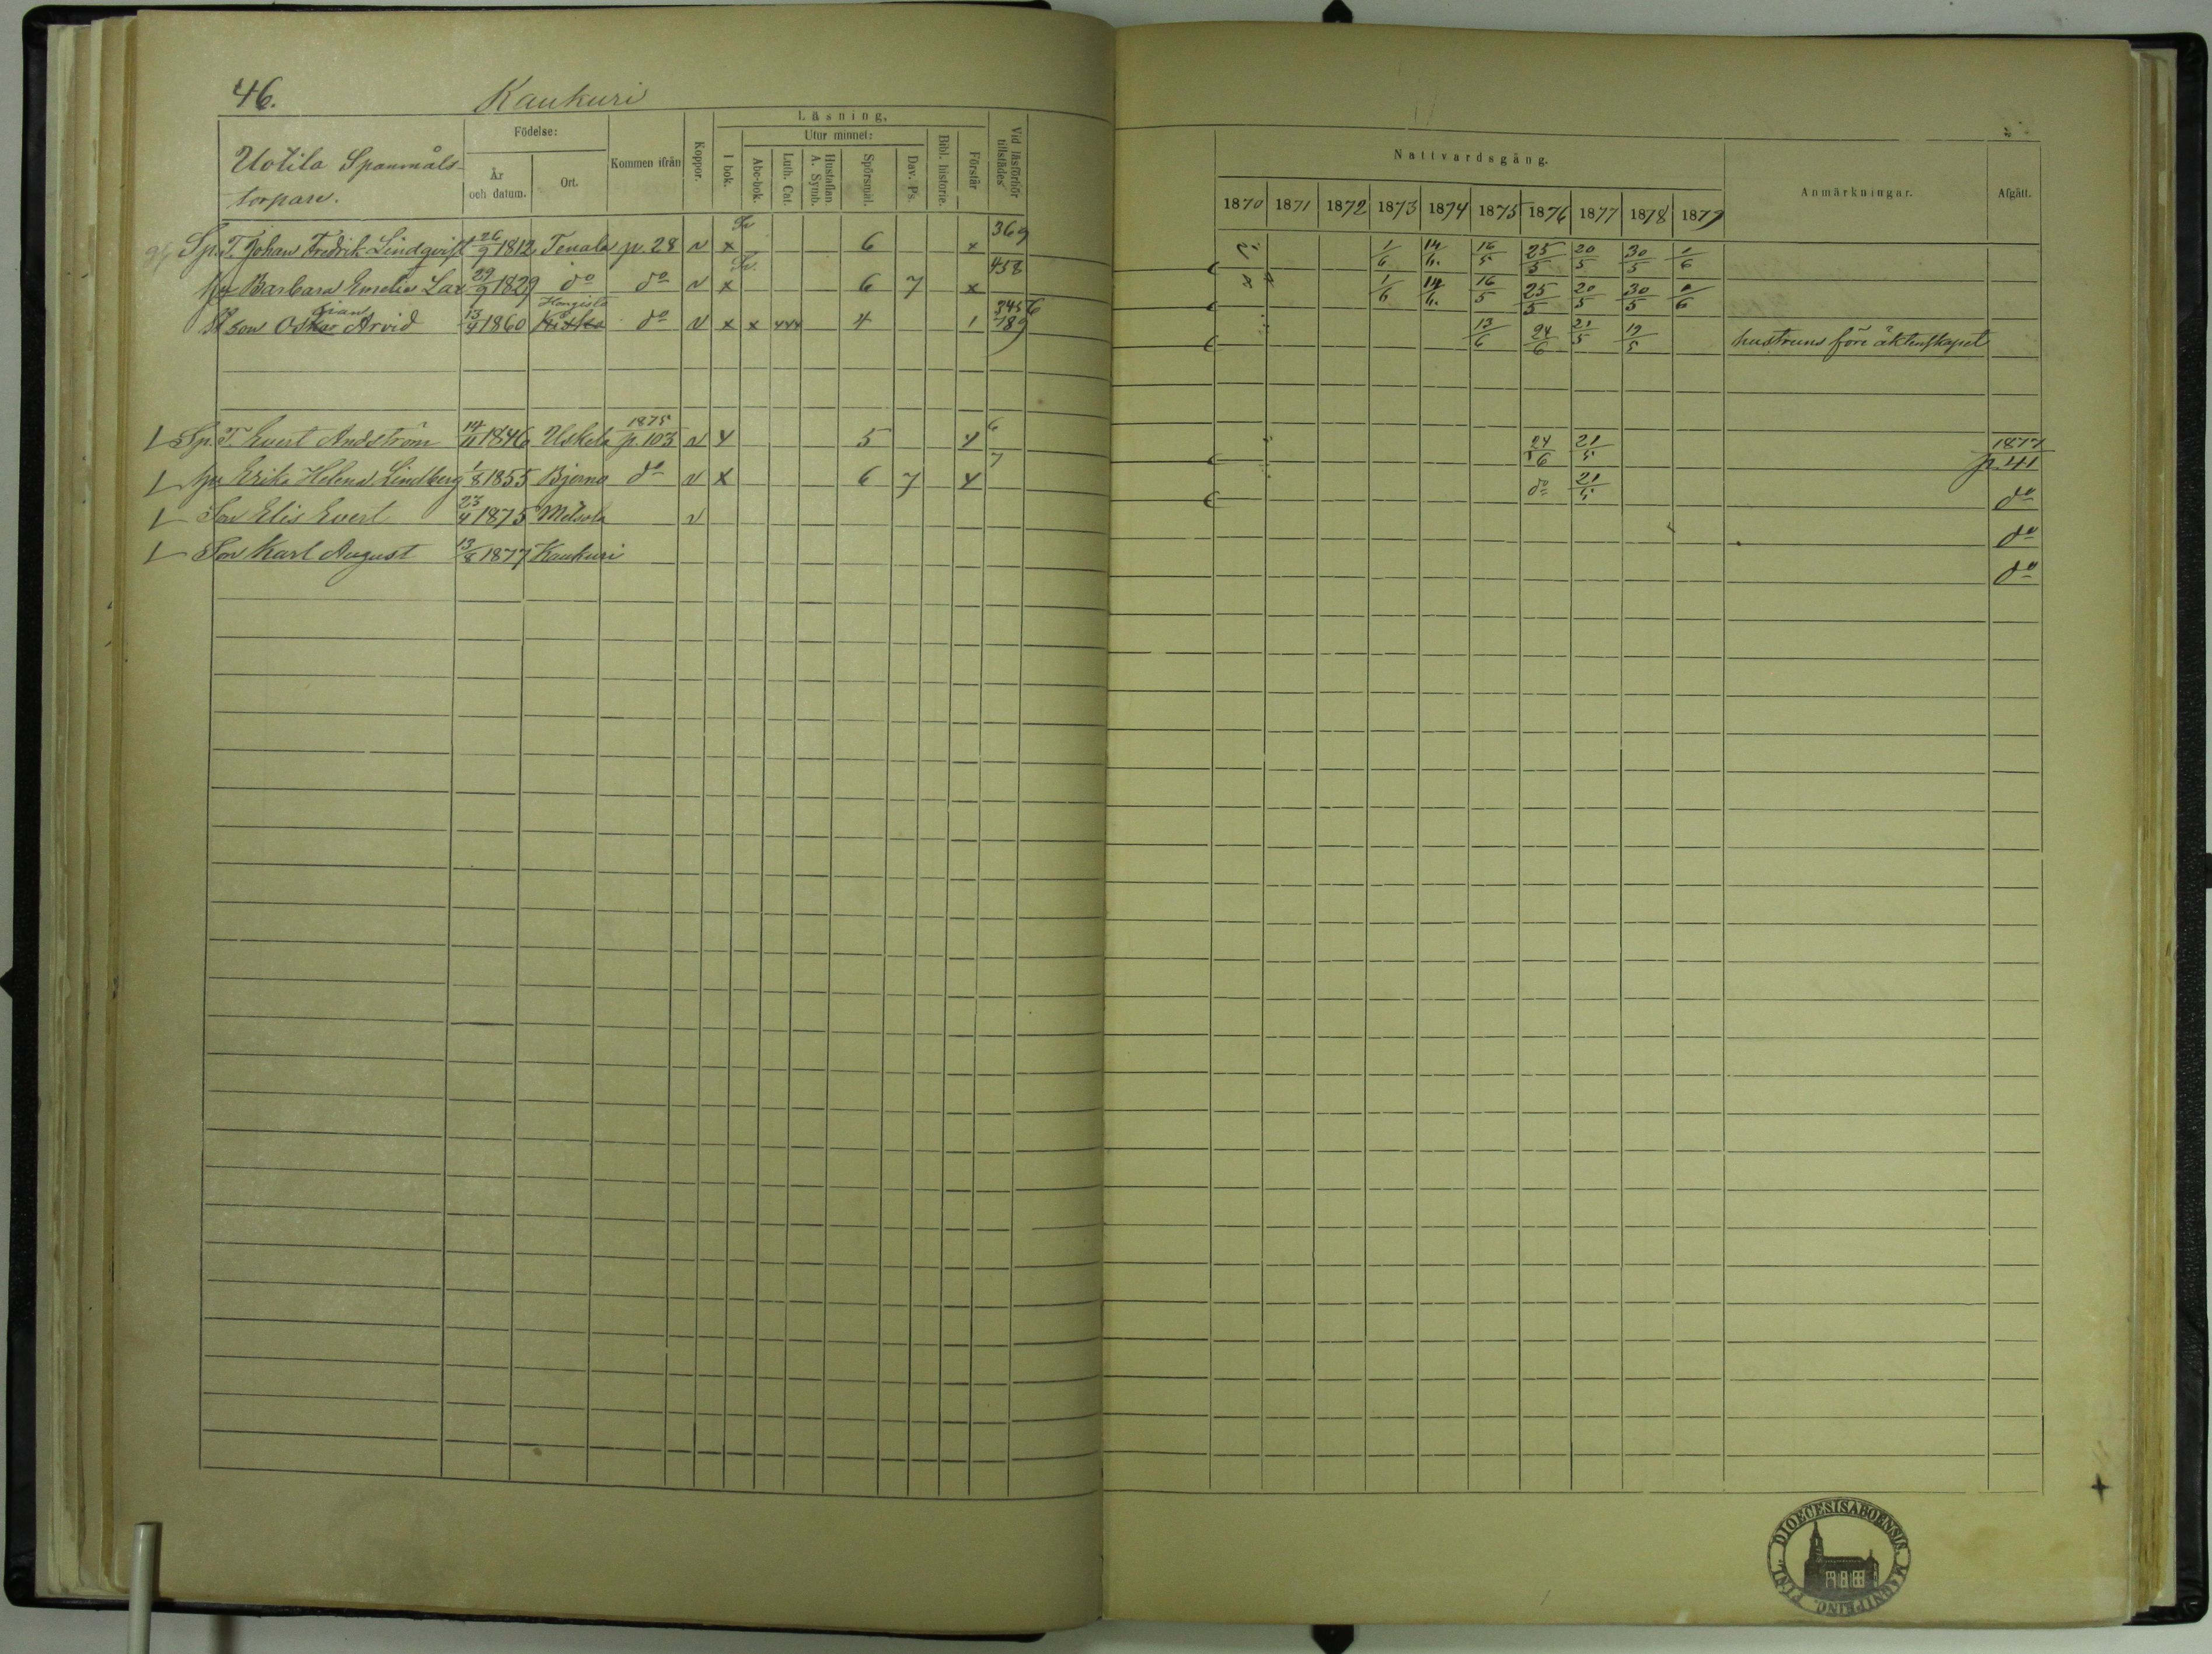 46. Kaukuri
Läsning.
Födelse: Utur minnet:
Uotila Spanmåls-
torpare.
År och datum. Ort. Kommen ifrån Koppor. I bok. Abc-bok. Luth. Cat. Hustaflan. A. Symb. Spörsmål. Dav. Ps. Bibl. historie. Förstår Vid läsförhör tillstädes
Sp. T. Johan Fredrik Lindqvist 26/9 1812 Tenala p. 28 v x 6 x 369
Hu Barbara Emelie Lax 29/9 1829 do do v x 6 7 x 458
Son Oskar Arvid 13/4 1860 Hongisto do v x x xxx 4 1 3456 789
Sp. T. Evert Andström 14/11 1846 Uskela 1875 p. 103 v x 5 x 6
Hu Erika Helena Lindberg 1/8 1855 Bjerno do v x 6 7 x 7
Son Elis Evert 23/4 1875 Metsola v
Son Karl August 13/8 1877 Kaukuri
Nattvardsgång. Anmärkningar. Afgått.
1870 1871 1872 1873 1874 1875 1876 1877 1878 1879
1/6 14/6. 16/5 25/5 20/5 30/5 1/6
1/6 14/6. 16/5 25/5 20/5 30/5 1/6
13/6 24/6 21/5 19/5 hustruns före äktenskapet
24/6 21/5 1877 p. 41
do 21/5 do
do
do
DIOECESIS ABOENSIS. MAGNI PRINC. FINL.